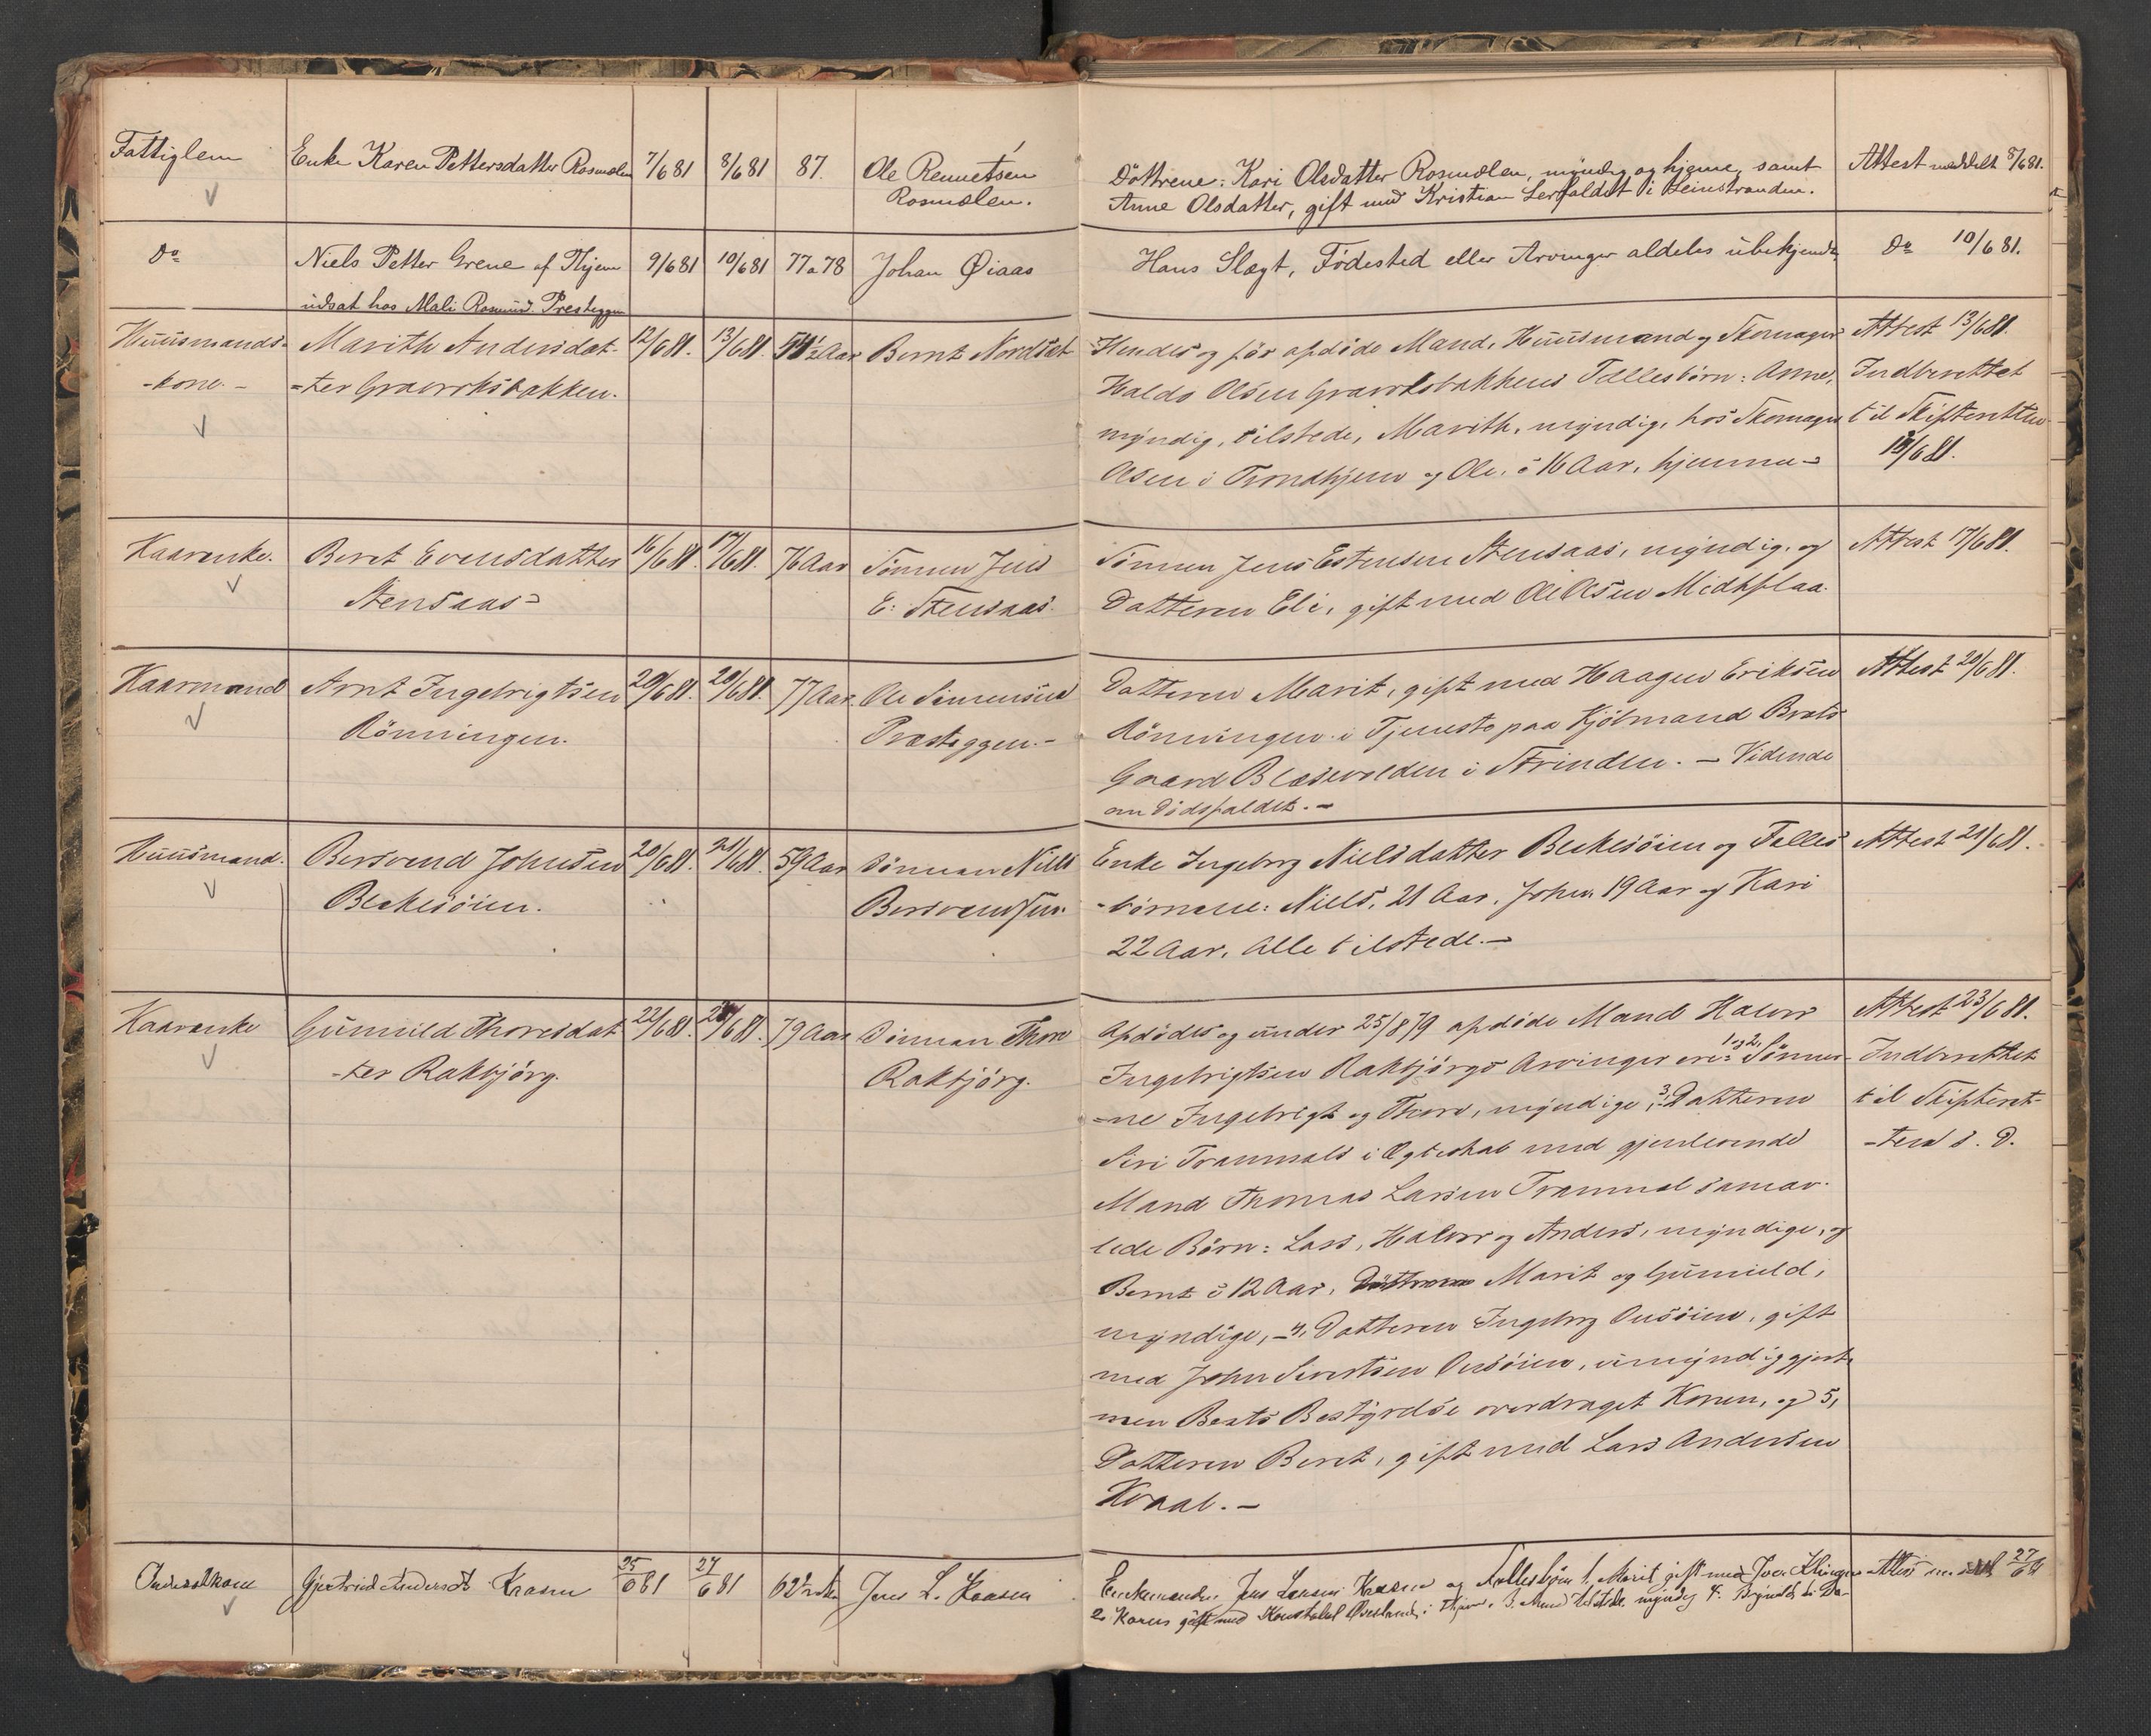 Fattiglem
Enke Karen Pettersdatter Rosmælen
7/6 81
8/6 81
87.
Ole Rennetsen
Rosmælen.
Döttrene: Kari Olsdatter Rosmælen, myndig og hjeme, samt
Anne Olsdatter, gift med Kristian Lerfaldet i Leinstranden.
Attest meddelt 8/6 81.
Do
Niels Petter Grene af Thjem
udsat hos Mali Rosmd. Presteggen
9/6 81
10/6 81
77 a 78
Johan Øiaas
Hans Slægt, Födested eller Arvinger aldeles ubekjendt.
Do 10/6 81.
Huusmands-
-kone.-
Marith Andersdat-
=ter Gravroksbakken.
12/6 81.
13/6 81.
Aar
Bernt Nordset
Hendes og för afdöde Mand, Huusmand og Skomager
Haldo Olsen Gravroksbakkens Fællesbörn: Anne,
myndig, tilstede, Marith, myndig, hos Skomager
Olsen i Trondhjem og Ole, 16 Aar, hjemme
Attest 13/6 81.
Indberettet
til Skifteretten
13/6 81.
Kaarenke.
Beret Evensdatter
Stensaas
16/6 81.
17/6 81.
76 Aar
Sönnen Jens
E. Stensaas.
Sönnen Jens Estensen Stensaas, myndig, og
Datteren Eli, gift med Ole Olsen
Attest 17/6 81.
Kaarmand
Arnt Ingebrigtsen
Rönningen.
20/6 81.
20/6 81.
77 Aar.
Ole Simensen
Præsteggen.-
Datteren Marit, gift med Haagen Eriksen
Rönningen i Tjeneste paa Kjöbmand
Gaard Blæsevolden i Strinden. - Vidende
om Dödsfaldet.-
Attest 20/6 81.
Huusmand.
Bersvend Johnsen
Blekesöien.
20/6 81.
21/6 81.
59 Aar
Sönnen Niels
Bersvendsen.
Enke Ingeborg Nielsdatter Blekesöien og Fælles
-börnene: Niels, 21 Aar, John 19 Aar og Kari
22 Aar, Alle tilstede.-
Attest 21/6 81.
Kaarenke
Gunnild Thoresdat
-ter Rakbjörg.
22/6 81.
23/6 81.
79 Aar
Sönnen Thore
Rakbjörg.
Afdödes og under 25/8 79 afdöde Mand Halvor
Ingebrigtsen Rakbjörgs Arvinger ere: 1 og 2, Sönner-
=ne Ingebrigt og Thore, myndige, 3, Datteren
Siri Trammels i Ægteskab med gjenlevende
Mand Thomas Larsen Trammel samav-
lede Börn: Lars, Halvor og Anders, myndige, og
Bernt 12 Aar, Marit og Gunnild,
myndige, - 4, Datteren Ingeborg Ousöien, gift
med John Sivertsen Ousöien, umyndiggjort,
men Boets Bestyrelse overdraget Konen, og 5,
Datteren Beret, gift med Lars Andersen
Kvaal.-
Attest 23/6 81.
Indberettet
til Skifteret-
-ten s. D.
Gjertrud Andersdt Kraasen
25/6 81
27/6 81
Jens L. Kraasen
Enkemanden Jens Larsen Kraasen og Fællesbörn 1, Marit gift med
2. Karen gift med Konstabel i Thjem. 3. tilstede myndig 4.
27/6 81